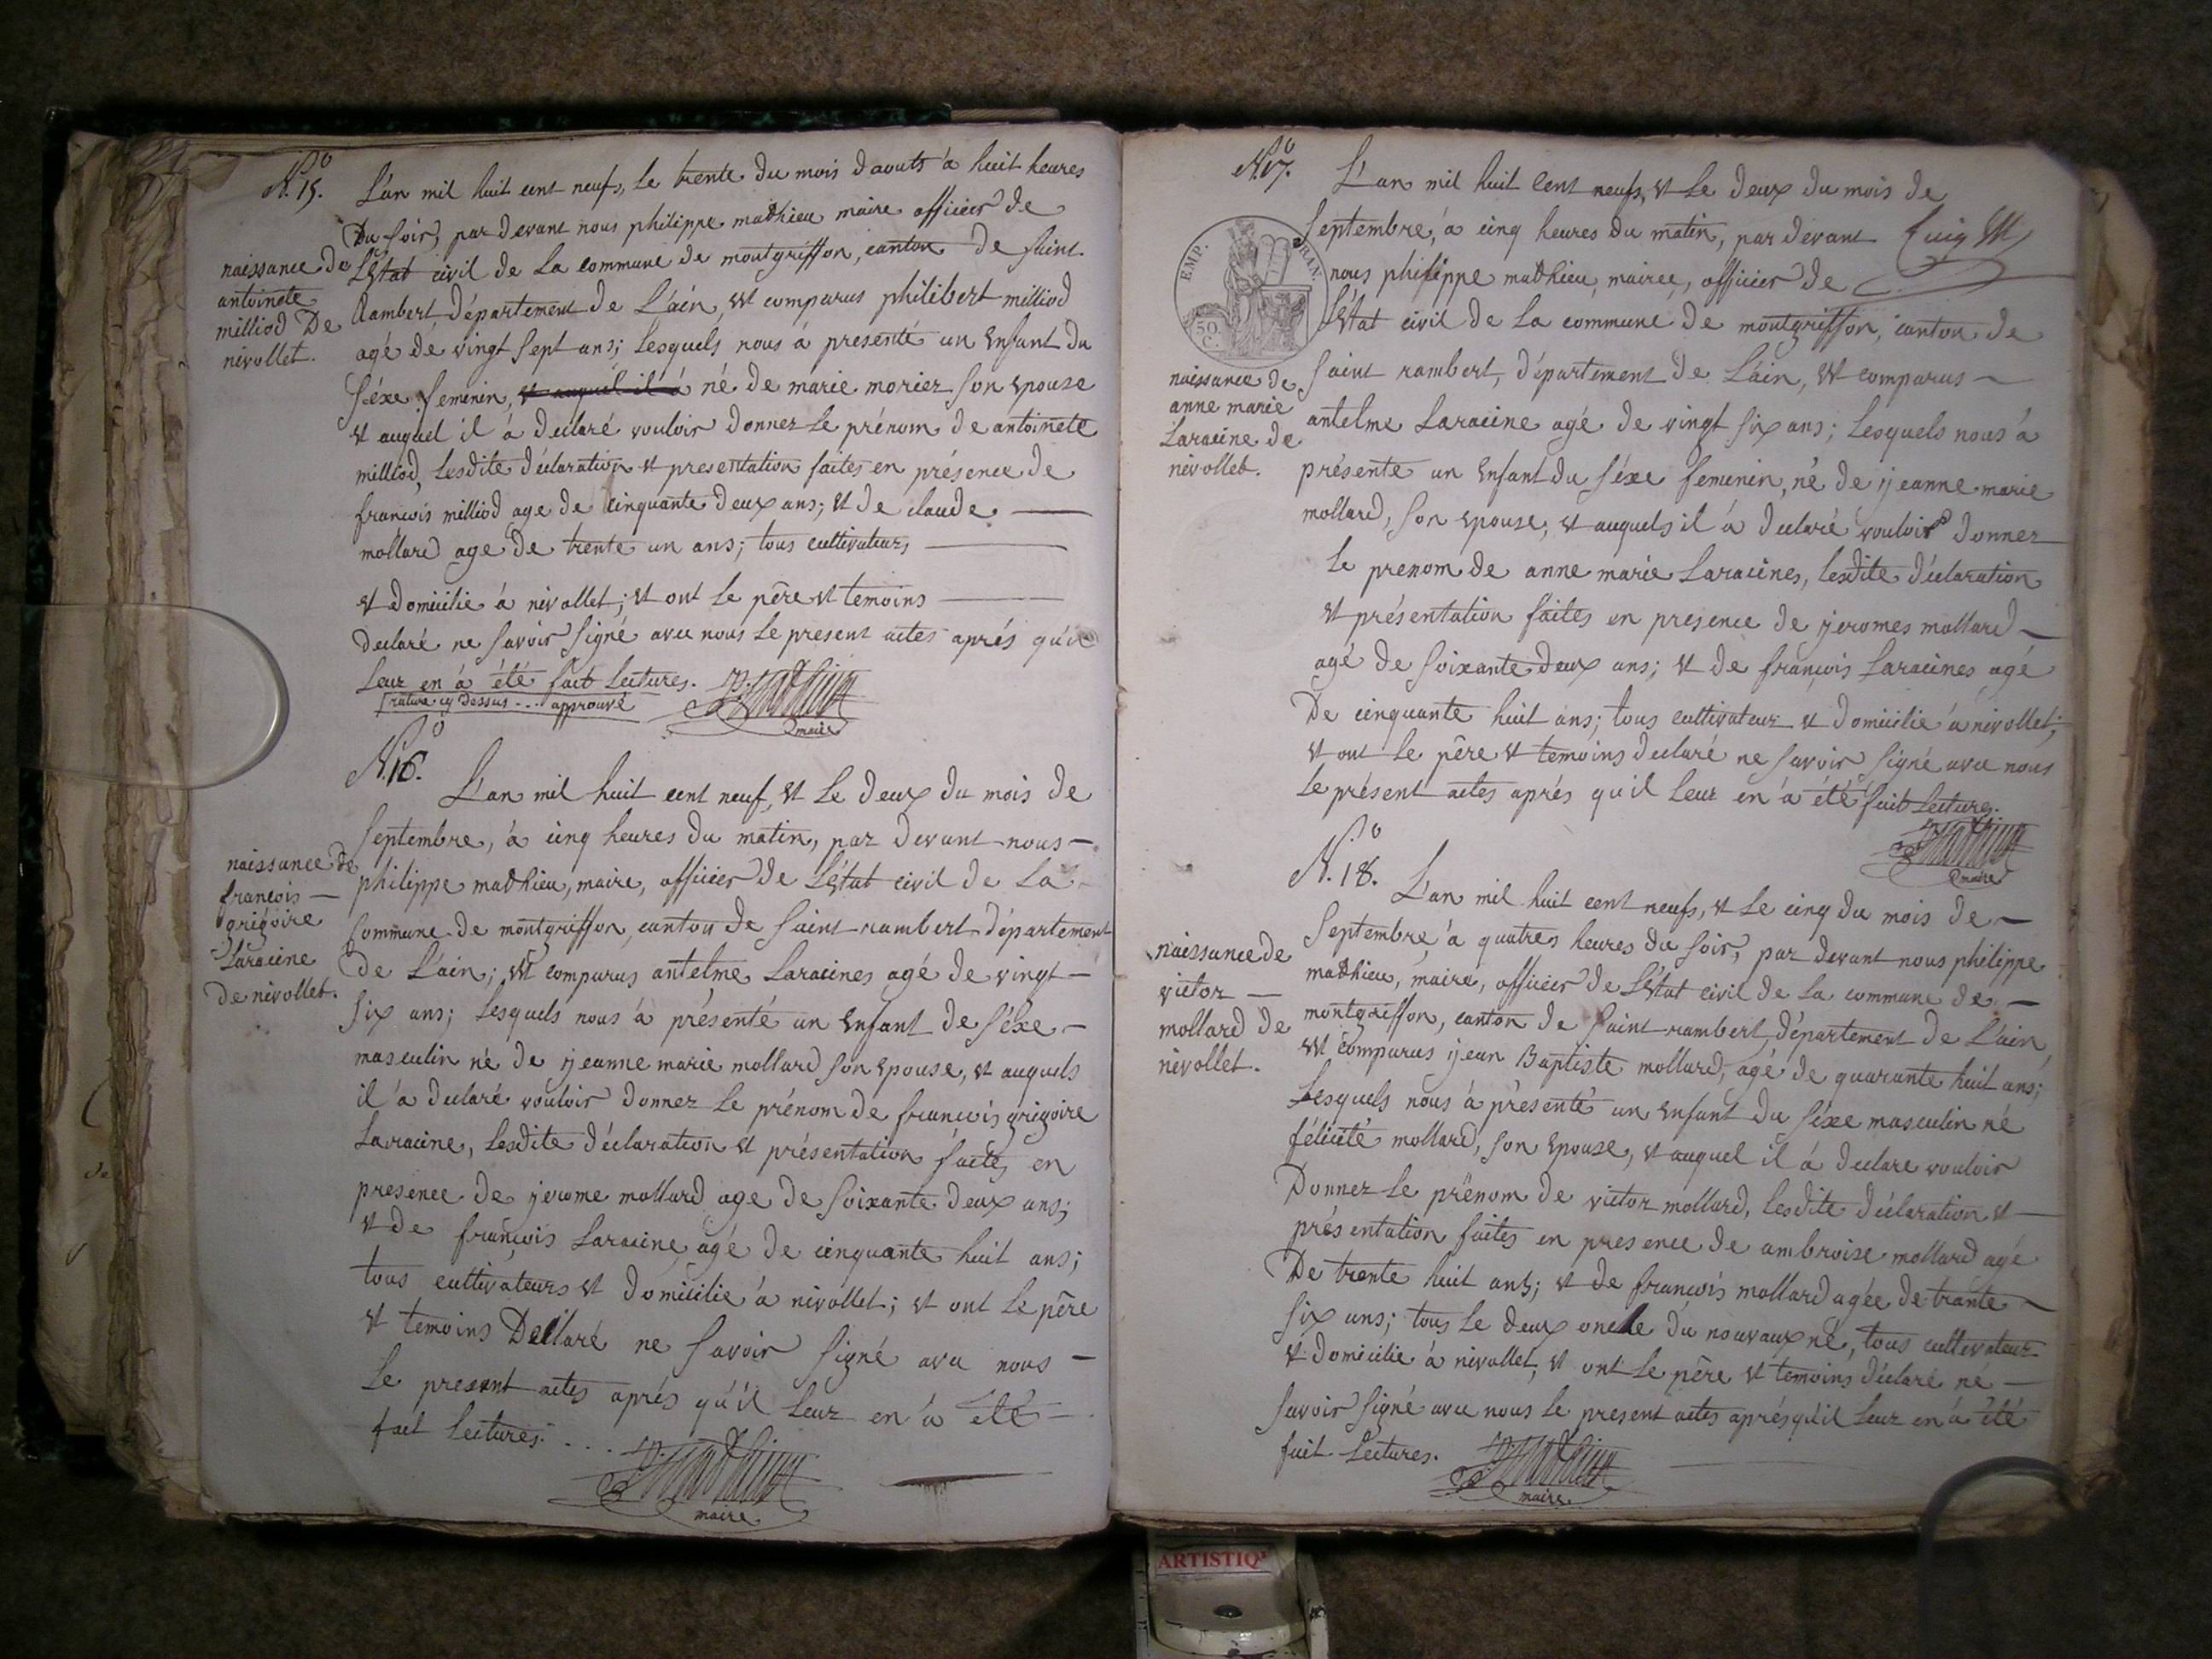 N.o 15.
L'an mil huit cent neufs, le trente du mois d'aouts à huit heures
Du soir, par devant nous philippe mathieu maire officier de
L'Etat civil de la commune de montgriffon, canton de saint
Rambert, département de L'ain, Est comparus philibert milliod
agé de vingt sept ans; Lesquels nous à presenté un Enfant du
séxe feminin, et auquel il à né de marie moriez son Epouse
et auquel il à declaré vouloir donner le prénom de antoinete
milliod, lesdite déclaration et presentation faites en présence de
francois milliod age de cinquante deux ans; et de claude
mollard age de trente un ans; tous cultivateurs
et domicilie à nivollet; et ont le père et temoins
declaré ne savoir signé avec nous le present actes aprés qu'il
Leur en à été fait Lectures.
rature cy dessus ... approuvé
P. Mathieu
maire
naissance de
antoinete
milliod De
nivollet.
N.o 16.
L'an mil huit cent neuf, et le deux du mois de
septembre, à cinq heures du matin, par devant nous
philippe mathieu, maire, officier de L'Etat civil de la
Commune de montgriffon, canton de saint rambert département
de L'ain; Est comparus antelme Laracines agé de vingt
six ans; Lesquels nous à présenté un Enfant de séxe
masculin né de jeanne marie mollard son Epouse, et auquels
il à declaré vouloir donner le prénom de francois grigoire
Laracine, lesdite déclaration et présentation faites en
presence de jerome mollard age de soixante deux ans;
et de françois Laracine agé de cinquante huit ans;
tous cultivateurs et domicilie à nivollet; et ont le père
et temoins Declaré ne savoir signé avec nous
le present actes aprés qu'il leur en à été
fait lectures. . . .
P. Mathieu
maire
naissance de
francois
grigoire
Laracine
De nivollet.
N.o 17.
L'an mil huit cent neufs, et le deux du mois de
septembre, à cinq heures du matin, par devant
nous philippe mathieu, mairee, officier de
L'Etat civil de la commune de montgriffon, canton de
saint rambert, département de L'ain, Est comparus
antelme Laracine agé de vingt six ans; Lesquels nous à
présente un Enfant du séxe feminin, né de jeanne marie
mollard, son Epouse, et auquels il à declaré vouloir donner
le prenom de anne marie Laracines, lesdite déclaration
et présentation faites en presence de jeromes mollard
agé de soixante deux ans; et de françois Laracines agé
De cinquante huit ans; tous cultivateur et domicilie à nivollet;
et ont le père et temoins declaré ne savoir signé avec nous
le présent actes aprés qu'il leur en à été fait Lectures.
P. Mathieu
maire
EMP. FRAN.
50.
C.
naissance de
anne marie
Laracine de
nivollet.
N.o 18.
L'an mil huit cent neufs, et le cinq du mois de
septembre à quatres heures du soir, par devant nous philippe
mathieu, maire, officier de L'Etat civil de la commune de
montgriffon, canton de saint rambert, département de L'ain,
Est comparus jean Baptiste mollard, agé de quarante huit ans;
Lesquels nous à présenté un Enfant du séxe masculin né
félicité mollard, son Epouse, et auquel il à declare vouloir
Donner le prénom de victor mollard, lesdite déclaration et
présentation faites en presence de ambroise mollard agé
De trente huit ans; et de francois mollard agée de trante
six ans; tous le deux oncle du nouvaux né, tous cultivateur
et domicilie à nivollet, et ont le père et temoins déclaré ne
savoir signé avec nous le present actes aprés qu'il leur en à été
fait Lectures.
P. Mathieu
maire
naissance de
victor
mollard de
nivollet.
ARTISTIQ